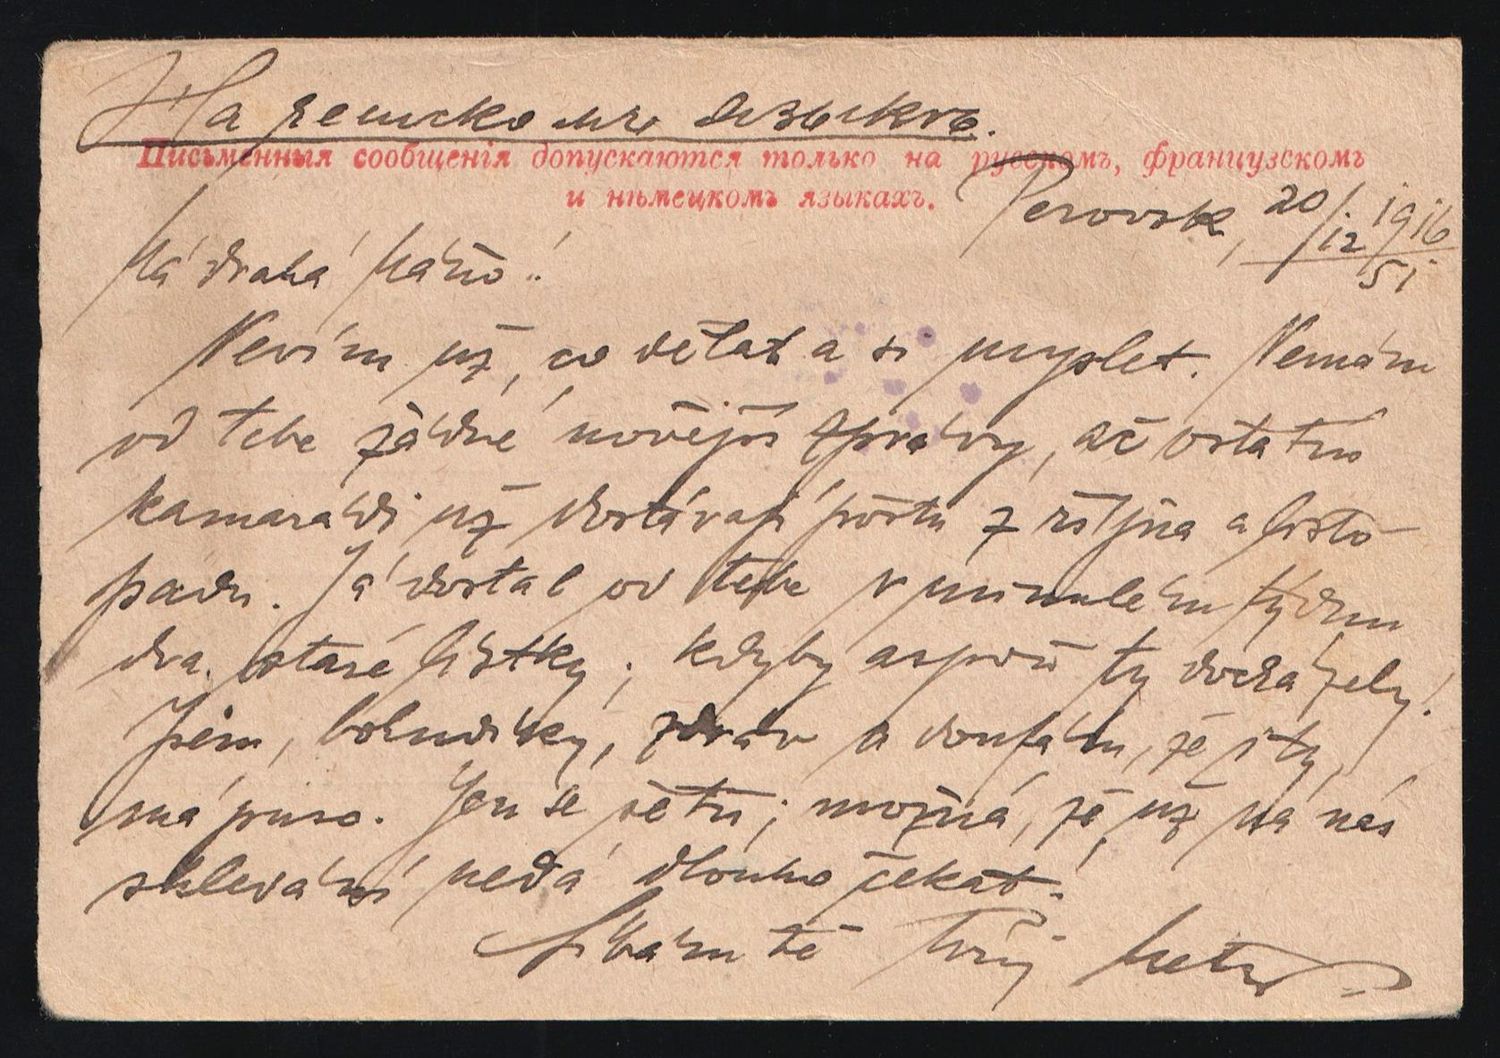 На чешскомъ языкѣ.
Письменныя сообщенія допускаются только на русскомъ, французскомъ
и нѣмецкомъ языкахъ.
Perovsk, 20/12 1916
51
Má drahá Máňo!
Nevím už, co dělat a si myslet. Nemám
od tebe žádné novější zprávy, ač ostatní
kamarádi už dostávají poštu z října a listo-
padu. Já dostal od tebe v minulém týdnu
dva staré lístky; kdyby aspoň ty docházely!
Jsem, bohudíky, zdráv a doufám, že i ty,
má puso. Jen se těš; možná, že už na nás
shledání nedá dlouho čekat.
Líbám tě Tvůj